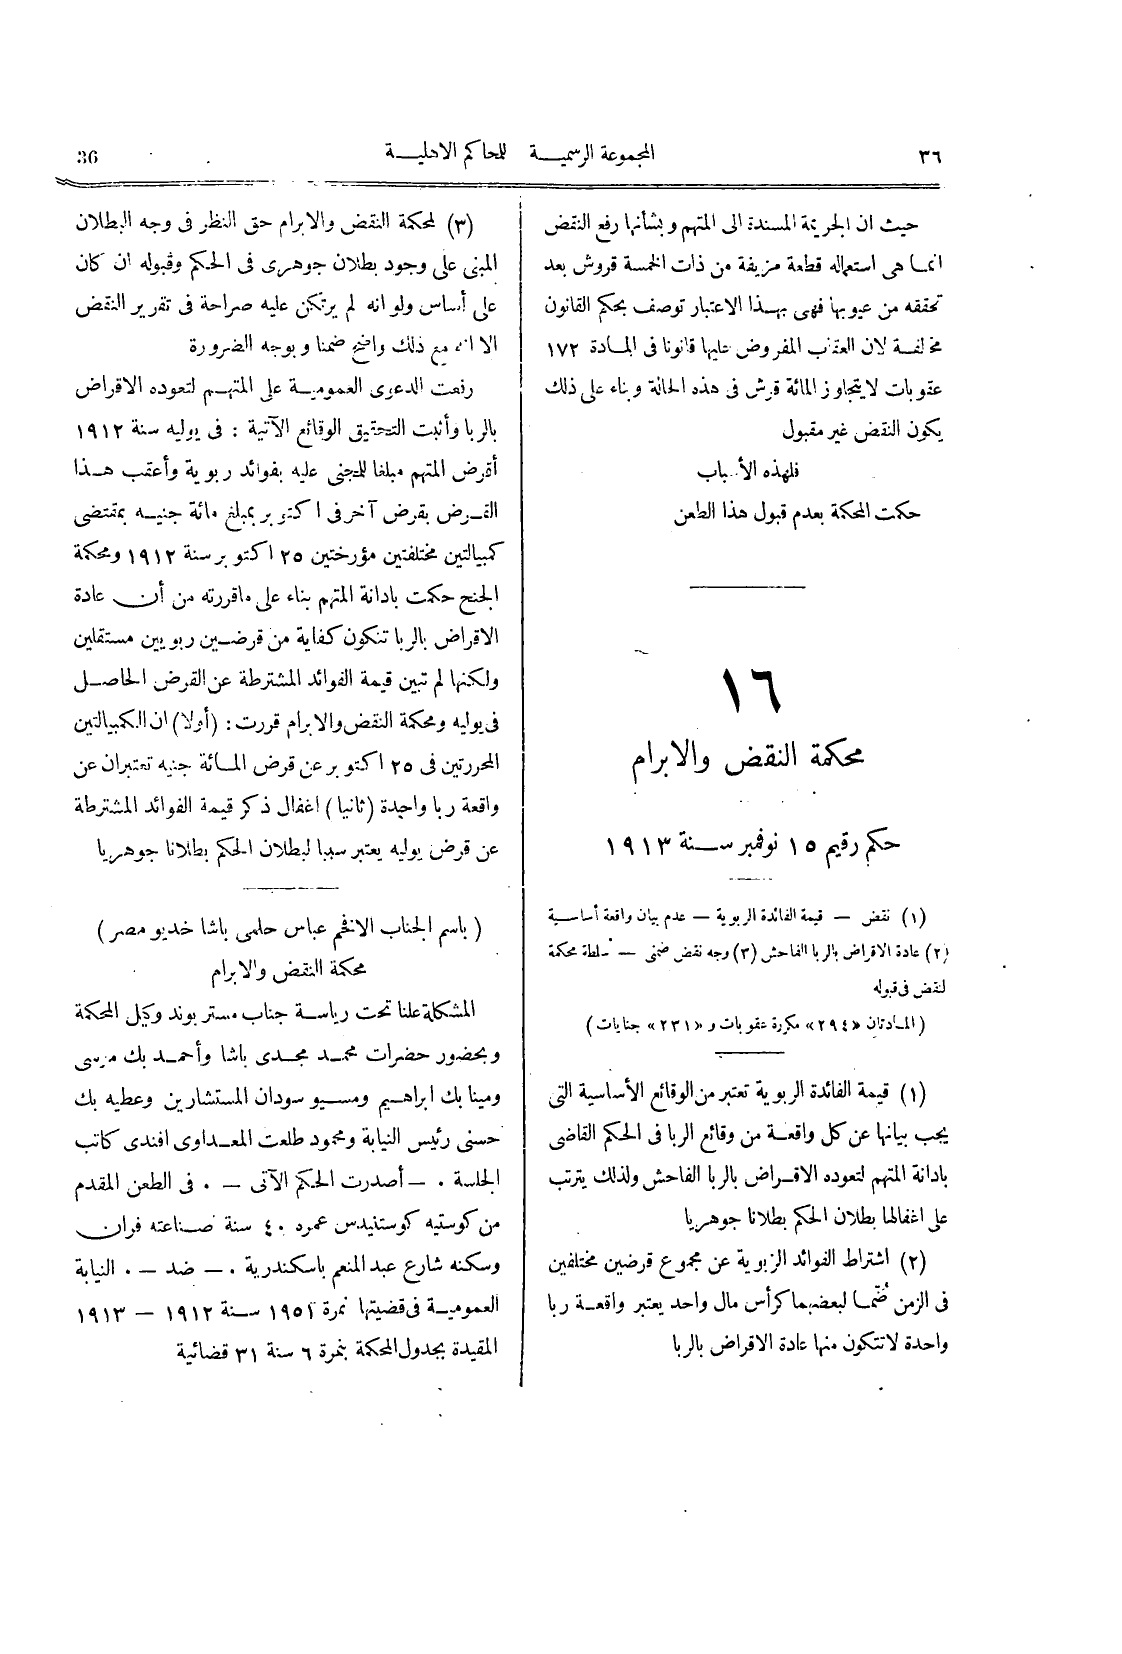 ٣٦ المجموعة الرسمية للمحاكم الاهلية 36
حيث ان الجريمة المسندة الى المتهم وبشأنها رفع النقض
انما هى استعماله قطعة مزيفة من ذات الخمسة قروش بعد
تحققه من عيوبها فهى بهذا الاعتبار توصف بحكم القانون
مخالفة لان العقاب المفروض عليها قانونا فى المادة ١٧٢
عقوبات لايتجاوز المائة قرش فى هذه الحالة وبناء على ذلك
يكون النقض غير مقبول
فلهذه الأسباب
حكمت المحكمة بعدم قبول هذا الطعن
١٦
محكمة النقض والابرام
حكم رقيم ١٥ نوفمبر سنة ١٩١٣
(١) نقض — قيمة الفائدة الربوية — عدم بيان واقعة أساسية
(٢) عادة الاقراض بالربا الفاحش (٣) وجه نقض ضمنى — سلطة محكمة
لنقض فى قبوله
( المادتان «٢٩٤» مكررة عقوبات و «٢٣١» جنايات )
(١) قيمة الفائدة الربوية تعتبر من الوقائع الأساسية التى
يجب بيانها عن كل واقعة من وقائع الربا فى الحكم القاضى
بادانة المتهم لتعوده الاقراض بالربا الفاحش ولذلك يترتب
على اغفالها بطلان الحكم بطلانا جوهريا
(٢) اشتراط الفوائد الربوية عن مجموع قرضين مختلفين
فى الزمن ضُمّا لبعضهما كرأس مال واحد يعتبر واقعة ربا
واحدة لاتتكون منها عادة الاقراض بالربا
(٣) لمحكمة النقض والابرام حق النظر فى وجه البطلان
المبنى على وجود بطلان جوهرى فى الحكم وقبوله ان كان
على أساس ولو انه لم يرتكن عليه صراحة فى تقرير النقض
الا انه مع ذلك واضح ضمنا وبوجه الضرورة
رفعت الدعوى العمومية على المتهم لتعوده الاقراض
بالربا وأثبت التحقيق الوقائع الآتية : فى يوليه سنة ١٩١٢
أقرض المتهم مبلغا للمجنى عليه بفوائد ربوية وأعقب هذا
القرض بقرض آخر فى اكتوبر بمبلغ مائة جنيه بمقتضى
كمبيالتين مختلفتين مؤرختين ٢٥ اكتوبر سنة ١٩١٢ ومحكمة
الجنح حكمت بادانة المتهم بناء على ماقررته من أن عادة
الاقراض بالربا تتكون كفاية من قرضين ربويين مستقلين
ولكنها لم تبين قيمة الفوائد المشترطة عن القرض الحاصل
فى يوليه ومحكمة النقض والابرام قررت : (أولا) ان الكمبيالتين
المحررتين فى ٢٥ اكتوبر عن قرض المائة جنيه تعتبران عن
واقعة ربا واحدة (ثانيا) اغفال ذكر قيمة الفوائد المشترطة
عن قرض يوليه يعتبر سببا لبطلان الحكم بطلانا جوهريا
( باسم الجناب الافخم عباس حلمى باشا خديو مصر )
محكمة النقض والابرام
المشكلة علنا تحت رياسة جناب مستر بوند وكيل المحكمة
وبحضور حضرات محمد مجدى باشا وأحمد بك موسى
ومينا بك ابراهيم ومسيو سودان المستشارين وعطيه بك
حسنى رئيس النيابة ومحمود طلعت المعداوى افندى كاتب
الجلسة . — أصدرت الحكم الآتى — . فى الطعن المقدم
من كوستيه كوستنيدس عمره ٤٠ سنة صناعته فران
وسكنه شارع عبد المنعم باسكندرية . — ضد — . النيابة
العمومية فى قضيتها نمرة ١٩٥١ سنة ١٩١٢ — ١٩١٣
المقيدة بجدول المحكمة بنمرة ٦ سنة ٣١ قضائية